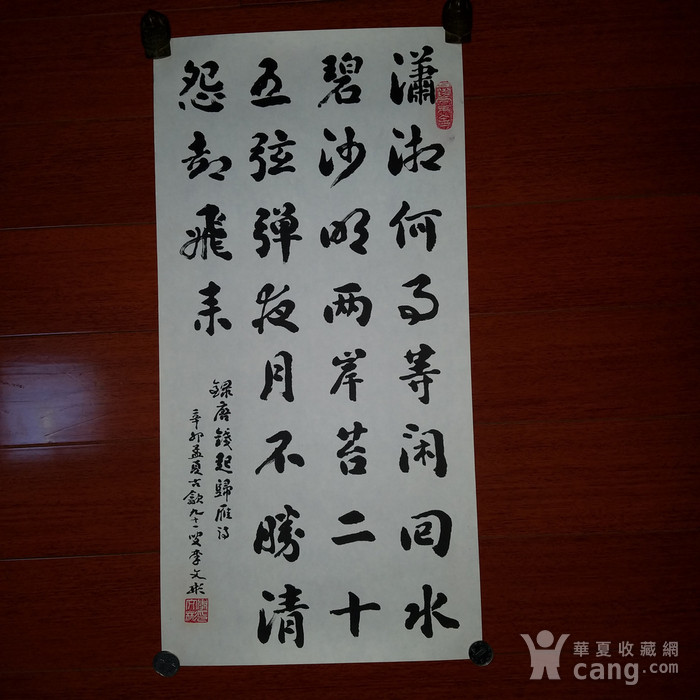 瀟湘何事等闲回水
碧沙明两岸苔二十
五弦弹夜月不勝清
怨却飛来
錄唐錢起歸雁詩
辛卯孟夏古歙九十一叟李文彬
華夏收藏網
cang.com